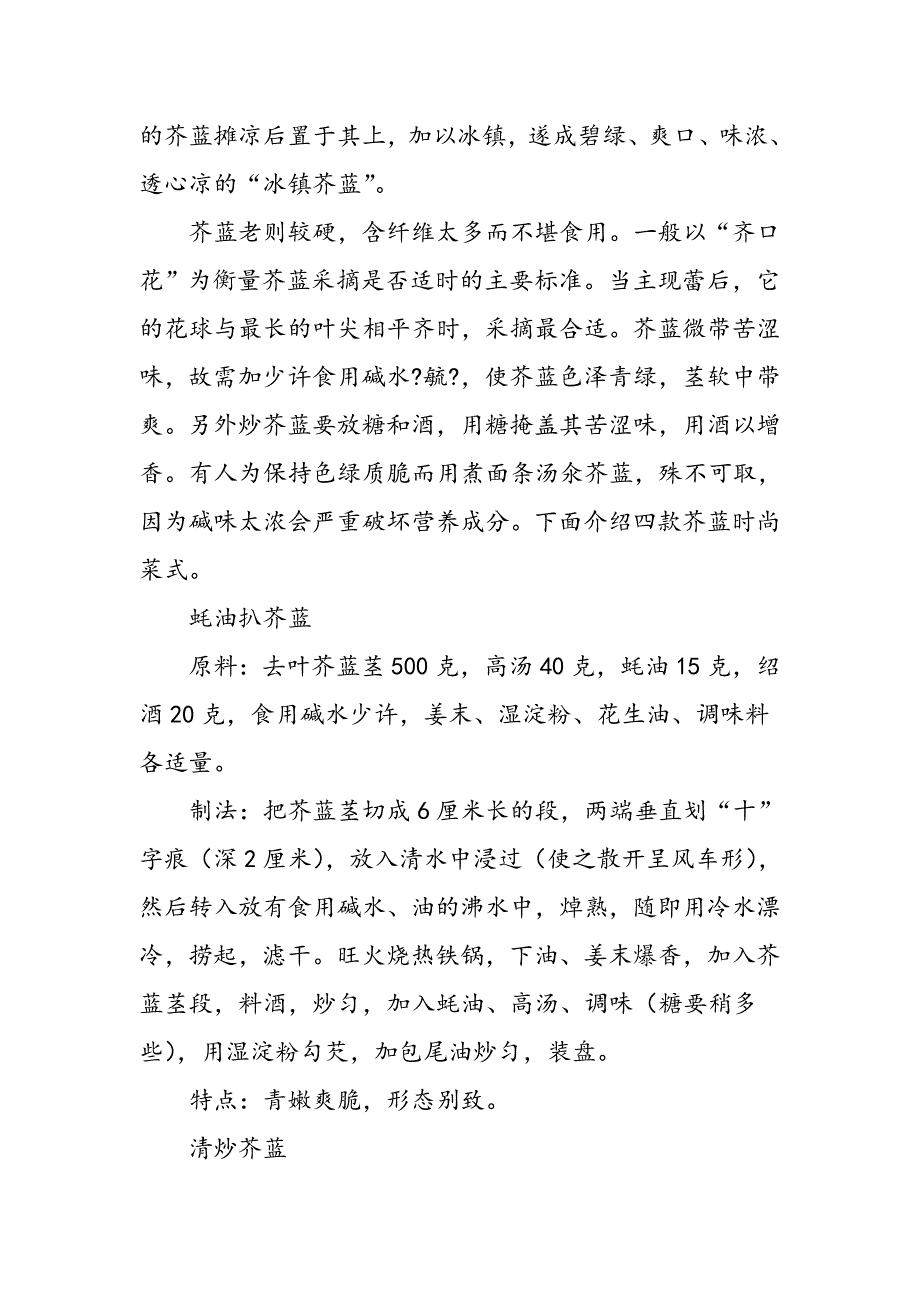 的芥蓝摊凉后置于其上，加以冰镇，遂成碧绿、爽口、味浓、
透心凉的“冰镇芥蓝”。
芥蓝老则较硬，含纤维太多而不堪食用。一般以“齐口
花”为衡量芥蓝采摘是否适时的主要标准。当主现蕾后，它
的花球与最长的叶尖相平齐时，采摘最合适。芥蓝微带苦涩
味，故需加少许食用碱水?毓?，使芥蓝色泽青绿，茎软中带
爽。另外炒芥蓝要放糖和酒，用糖掩盖其苦涩味，用酒以增
香。有人为保持色绿质脆而用煮面条汤汆芥蓝，殊不可取，
因为碱味太浓会严重破坏营养成分。下面介绍四款芥蓝时尚
菜式。
蚝油扒芥蓝
原料：去叶芥蓝茎500克，高汤40克，蚝油15克，绍
酒20克，食用碱水少许，姜末、湿淀粉、花生油、调味料
各适量。
制法：把芥蓝茎切成6厘米长的段，两端垂直划“十”
字痕（深2厘米），放入清水中浸过（使之散开呈风车形），
然后转入放有食用碱水、油的沸水中，焯熟，随即用冷水漂
冷，捞起，滤干。旺火烧热铁锅，下油、姜末爆香，加入芥
蓝茎段，料酒，炒匀，加入蚝油、高汤、调味（糖要稍多
些），用湿淀粉勾芡，加包尾油炒匀，装盘。
特点：青嫩爽脆，形态别致。
清炒芥蓝